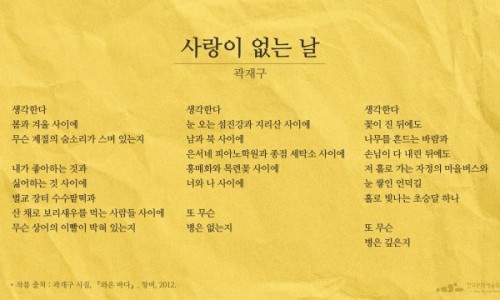 사랑이 없는 날
곽재구
생각한다
봄과 겨울 사이에
무슨 계절의 숨소리가 스며 있는지
내가 좋아하는 것과
싫어하는 것 사이에
벌교 장터 수수팥떡과
산 채로 보리새우를 먹는 사람들 사이에
무슨 상어의 이빨이 박혀 있는지
생각한다
눈 오는 섬진강과 지리산 사이에
남과 북 사이에
은서네 피아노학원과 종점 세탁소 사이에
홍매화와 목련꽃 사이에
너와 나 사이에
또 무슨
병은 없는지
생각한다
꽃이 진 뒤에도
나무를 흔드는 바람과
손님이 다 내린 뒤에도
저 홀로 가는 자정의 마을버스와
눈 쌓인 언덕길
홀로 빛나는 초승달 하나
또 무슨
병은 깊은지
* 작품 출처 : 곽재구 시집, 『와온 바다』, 창비, 2012.